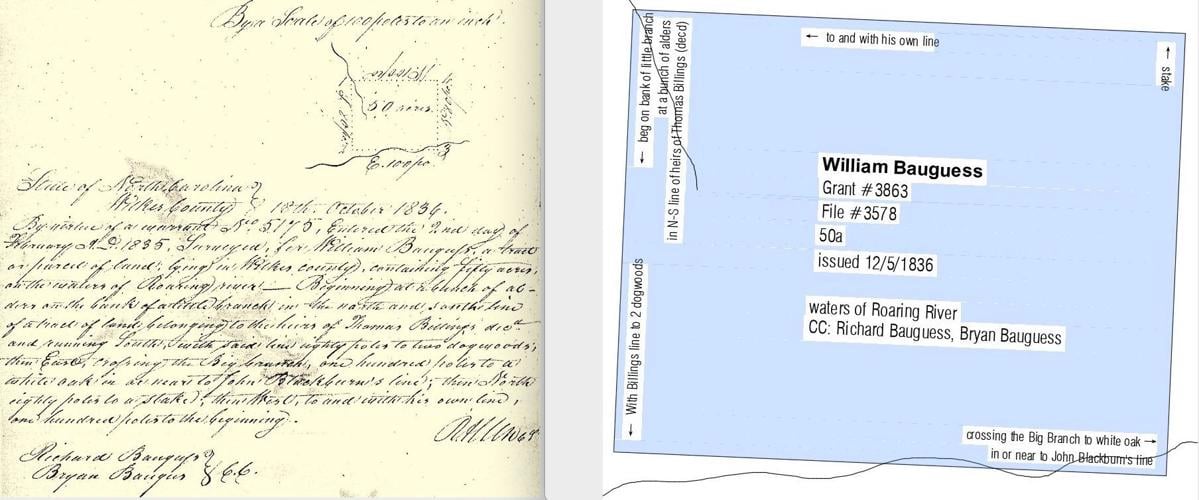 By a Scale of 100 poles to an inch.
50 acres
E. 100 po
State of North Carolina }
Wilkes County } 18th. October 1836.
By virtue of a warrant No 5175, Entered the 2nd day of
February A.D. 1835, Surveyed, for William Bauguss, a tract
or parcel of land, lying in Wilkes county, containing fifty acres,
on the waters of Roaring river — Beginning at a bunch of al-
ders on the bank of a little branch in the north and south line
of a tract of land belonging to the heirs of Thomas Billings, decd
and running South, with said line eighty poles to two dogwoods;
then East, crossing the Big branch, one hundred poles to a
white oak in or near to John Blackburn's line; then North
eighty poles to a stake; then West, to and with his own line,
one hundred poles to the beginning.
Richard Bauguss }
Bryan Baugus } C.C.
← to and with his own line
← stake
← beg on bank of little branch
at a bunch of alders
in N-S line of heirs of Thomas Billings (decd)
William Bauguess
Grant #3863
File #3578
50a
issued 12/5/1836
waters of Roaring River
CC: Richard Bauguess, Bryan Bauguess
← With Billings line to 2 dogwoods
crossing the Big Branch to white oak →
in or near to John Blackburn's line